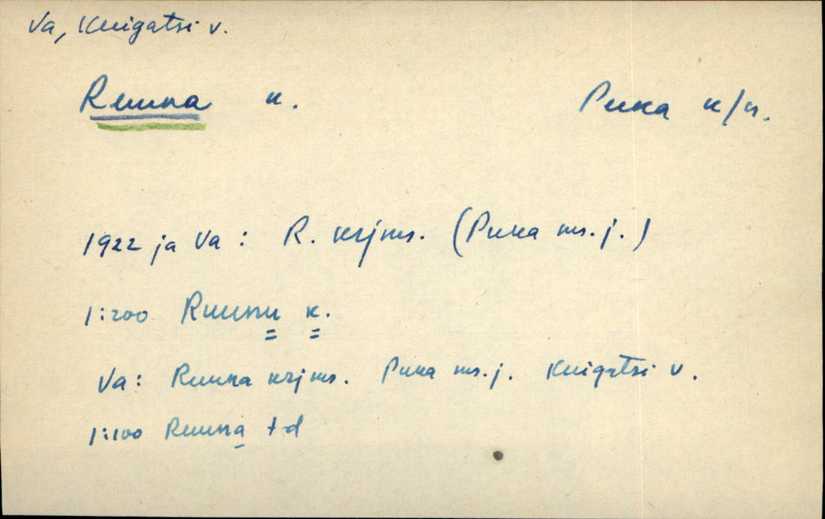 Va, Kuigatsi v.
Ruuna k. Puka k/n.
1922 ja Va: R. krjms. (Puka ms.j.)
1:200 Ruunu k.
Va: Ruuna krjms. Puka ms.j. Kuigatsi v.
1:100 Ruuna td